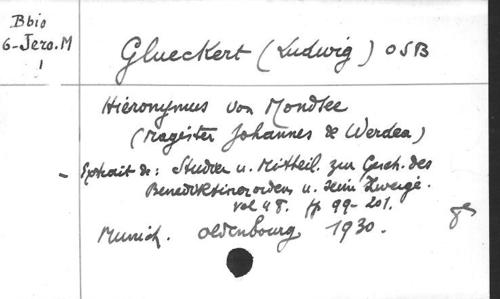 Bbio
6-Jero.M
1
Glueckert (Ludwig) OSB
Hieronymus von Mondsee
(Magister Johannes de Werdea)
- Extrait de: Studien u. Mitteil. zur Gesch. des
Benediktinerorden u. seine Zweige.
vol 48. pp 99-201.
Munich. Oldenbourg 1930.